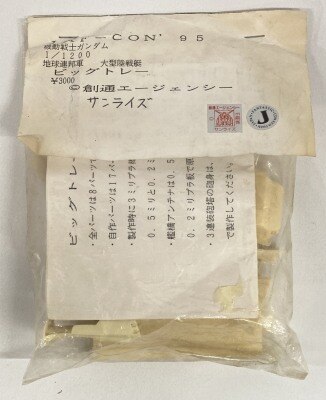 CON' 95
機動戦士ガンダム
1/1200
地球連邦軍 大型陸戦艇
ビッグトレー
¥3000
©創通エージェンシー
サンライズ
創通エージェンシー
サンライズ
J
ビッグトレ
・全パーツは8パーツで
・自作パーツは17パ
・製作時に3ミリプラ
0.5ミリと0.2ミ
・艦橋アンテナは0.5
0.2ミリプラ板で
・3連装砲塔の砲身は、
で製作してください。